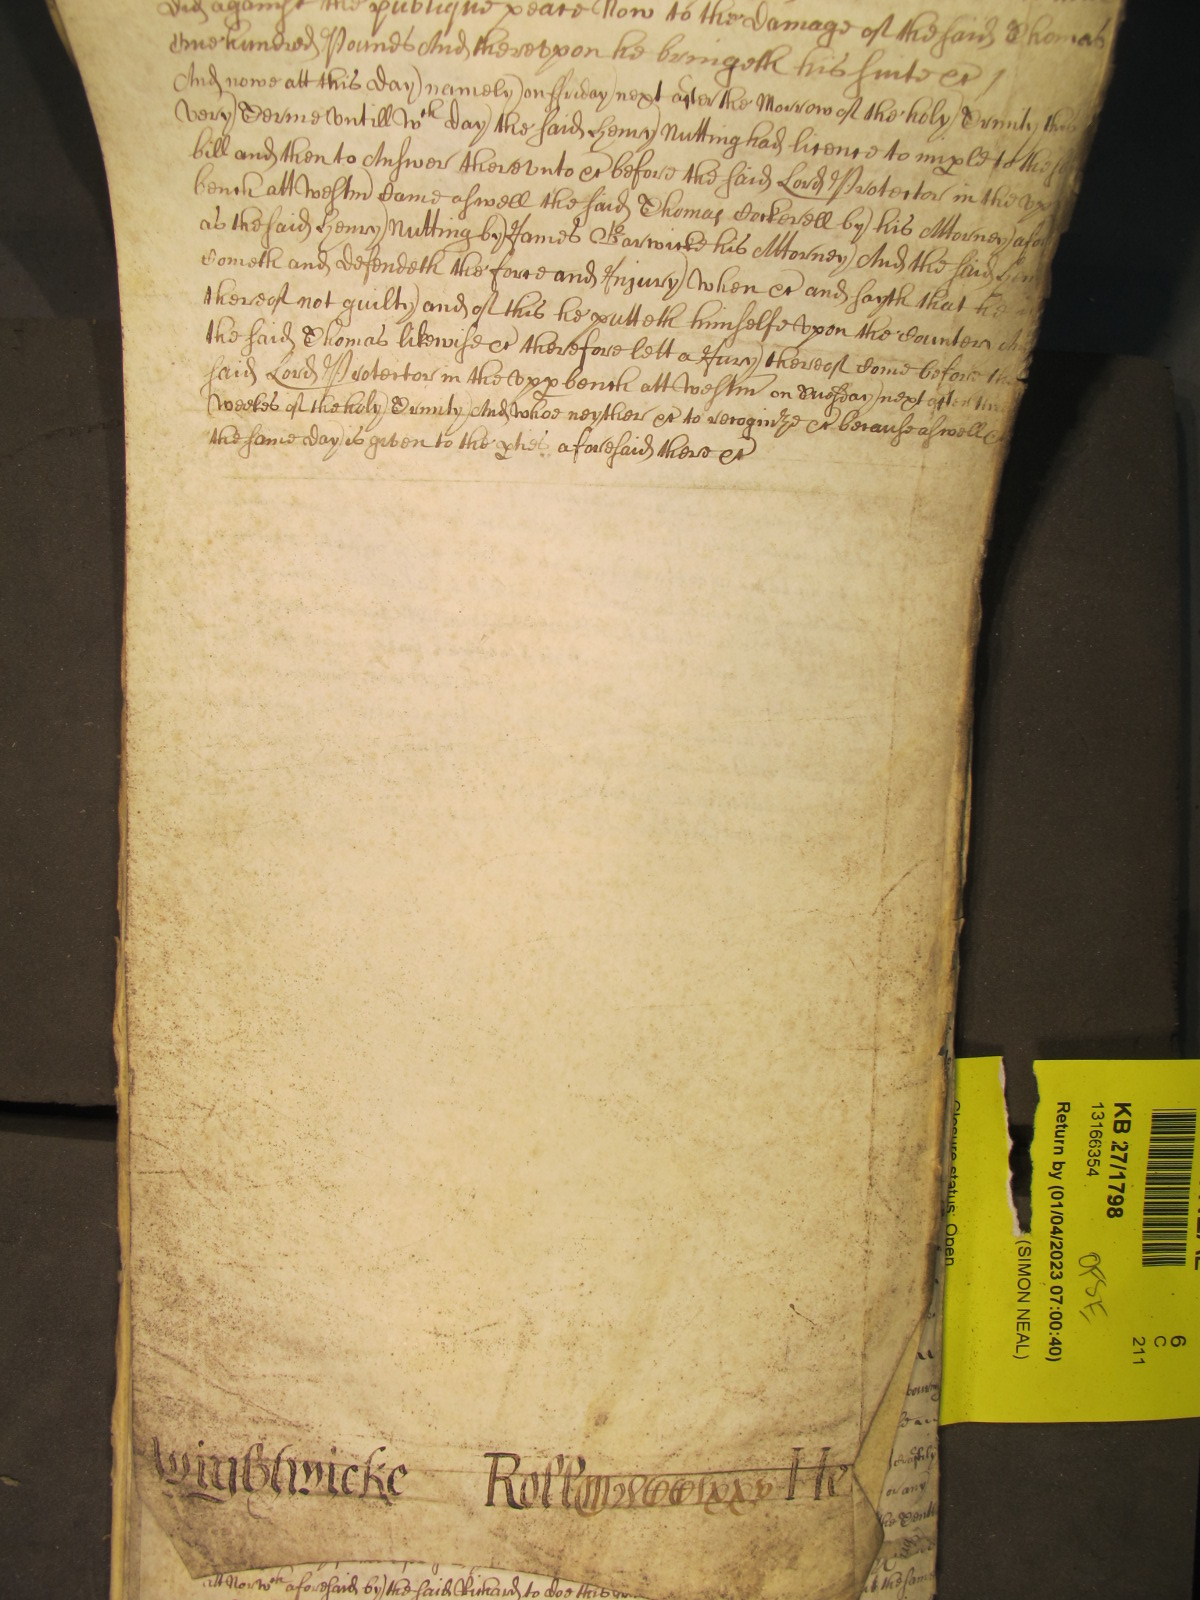 did against the publique peace Now to the damage of the said Thomas
One hundred Pounds And therevpon he bringeth his suite &c
And nowe att this day namely on ffriday next after the Morrow of the holy Trinity this
very Terme vntill wch day the said Henry Nutting had licence to imple to the
bill and then to Answer therevnto &c before the said Lord Protector in the vpp
bench att Westm Came aswell the said Thomas Cockerell by his Attorney afor
as the said Henry Nutting by James Barwicke his Attorney And the said Hen
Cometh and defendeth the force and Injury when &c and sayth that he is
thereof not guilty and of this he putteth himselfe vpon the Countery And
the said Thomas likewise &c therefore lett a Jury thereof Come before the
said Lord Protector in the vpp bench att Westm on Tuesday next after three
weekes of the holy Trinity And whoe neyther &c to recognize &c because aswell &c
the same day is given to the pties aforesaid there &c
Wightwicke Roll He
att Norwch aforesaid by the said Richard to doe this
KB 27/1798
13166354
Return by (01/04/2023 07:00:40)
(SIMON NEAL)
Closure status: Open
6
C
211
or any